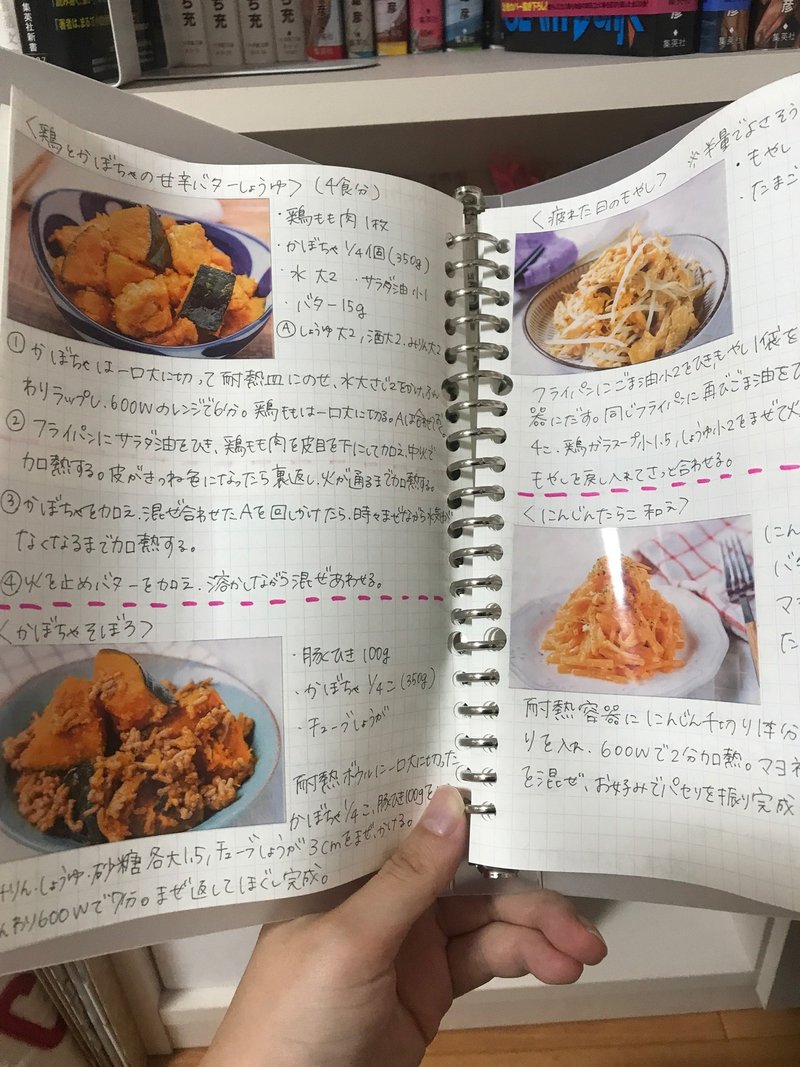 集英社新書
ち充
ち充
ち充
彦
集英社
集英社
集英社
<鶏とかぼちゃの甘辛バターしょうゆ> (4食分)
・鶏もも肉 1枚
・かぼちゃ 1/4個 (350g)
・水 大2 ・サラダ油 小1
・バター 15g
Ⓐ しょうゆ大2, 酒大2, みりん大2
① かぼちゃは一口大に切って耐熱皿にのせ、水大さじ2をかけ、ふん
わりラップし、600Wのレンジで6分。鶏ももは一口大に切る。Aは合わせ
② フライパンにサラダ油をひき、鶏もも肉を皮目を下にして加え、中火で
加熱する。皮がきつね色になったら裏返し、火が通るまで加熱する。
③ かぼちゃを加え、混ぜ合わせたAを回しかけたら、時々まぜながら水気が
なくなるまで加熱する。
④ 火を止めバターを加え、溶かしながら混ぜあわせる。
<かぼちゃそぼろ>
・豚ひき 100g
・かぼちゃ 1/4こ (350g)
・チューブしょうが
耐熱ボウルに一口大に切った
かぼちゃ1/4こ、豚ひき100gを
みりん・しょうゆ・砂糖 各大1.5, チューブしょうが3cmをまぜ、かける。
んわり600Wで7分。まぜ返してほぐし完成。
※半量でよさそう
・もやし
・たまご
<疲れた日のもやし>
フライパンにごま油小2をひき、もやし1袋を
器にだす。同じフライパンに再びごま油を
4こ、鶏ガラスープ小1.5, しょうゆ小2をまぜて
もやしを戻し入れてさっと合わせる。
<にんじんたらこ和え>
にん
バ
マヨ
た
耐熱容器に にんじん千切り1本分
りを入れ、600Wで2分加熱。マヨネ
を混ぜ、お好みでパセリを振り完成